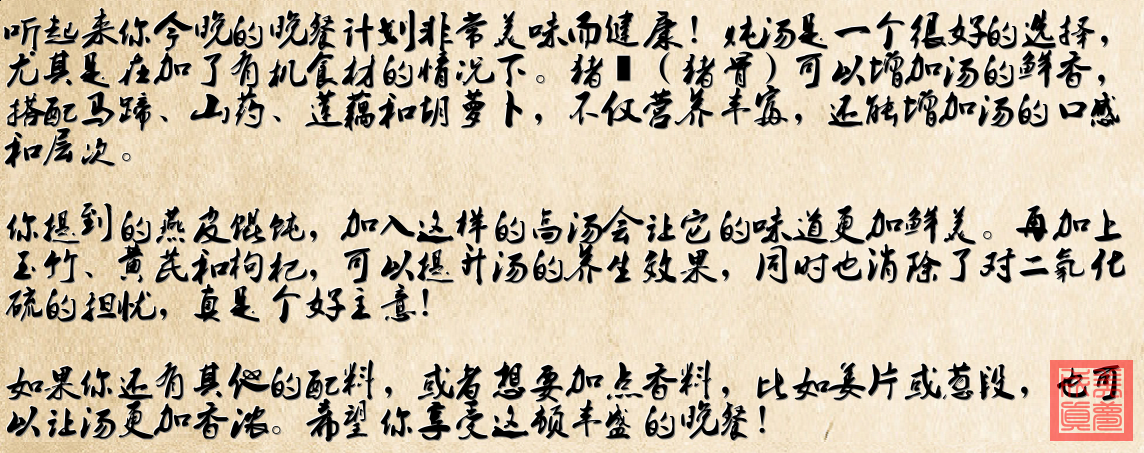 听起来你今晚的晚餐计划非常美味而健康！炖汤是一个很好的选择，
尤其是在加了有机食材的情况下。猪（猪骨）可以增加汤的鲜香，
搭配马蹄、山药、莲藕和胡萝卜，不仅营养丰富，还能增加汤的口感
和层次。
你提到的燕皮馄饨，加入这样的高汤会让它的味道更加鲜美。再加上
玉竹、黄芪和枸杞，可以提升汤的养生效果，同时也消除了对二氧化
硫的担忧，真是个好主意！
如果你还有其他的配料，或者想要加点香料，比如姜片或葱段，也可
以让汤更加香浓。希望你享受这顿丰盛的晚餐！